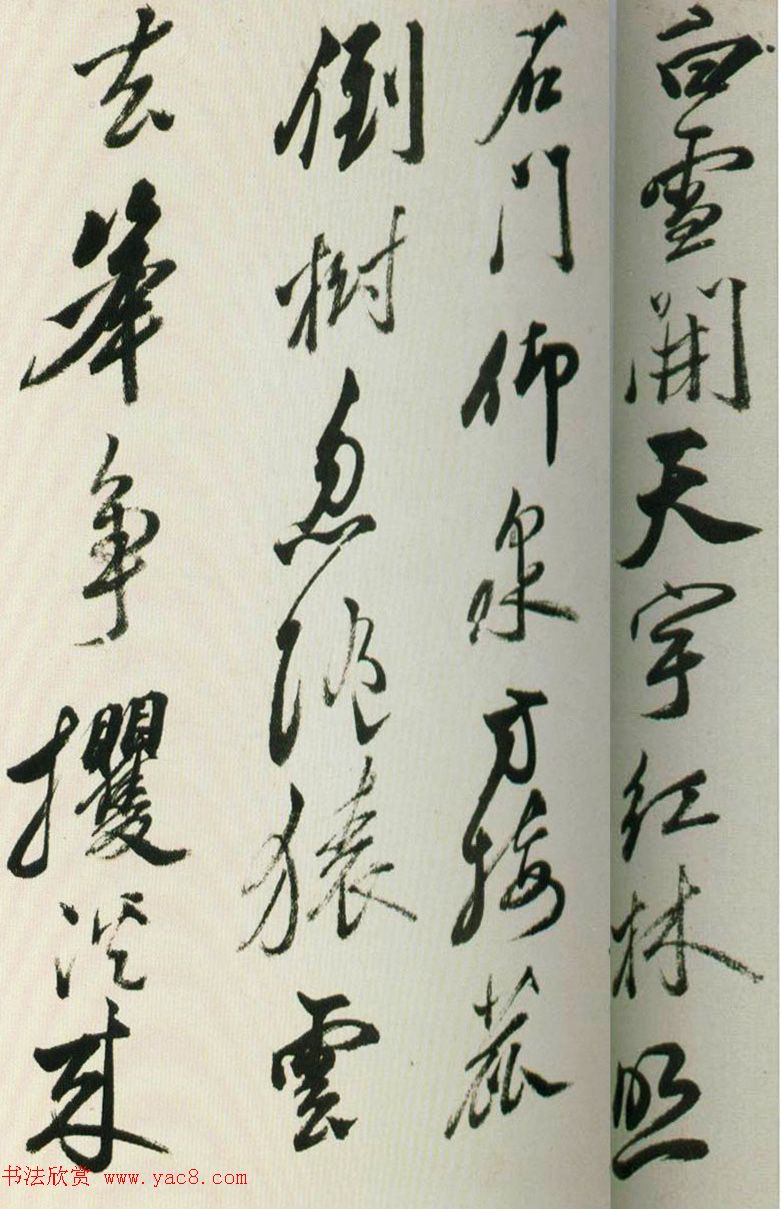 白雪開天宇紅林照
石門仰泉方接
倒樹忽隨猿雲
去峯争攫溪来
书法欣赏 www.yac8.com